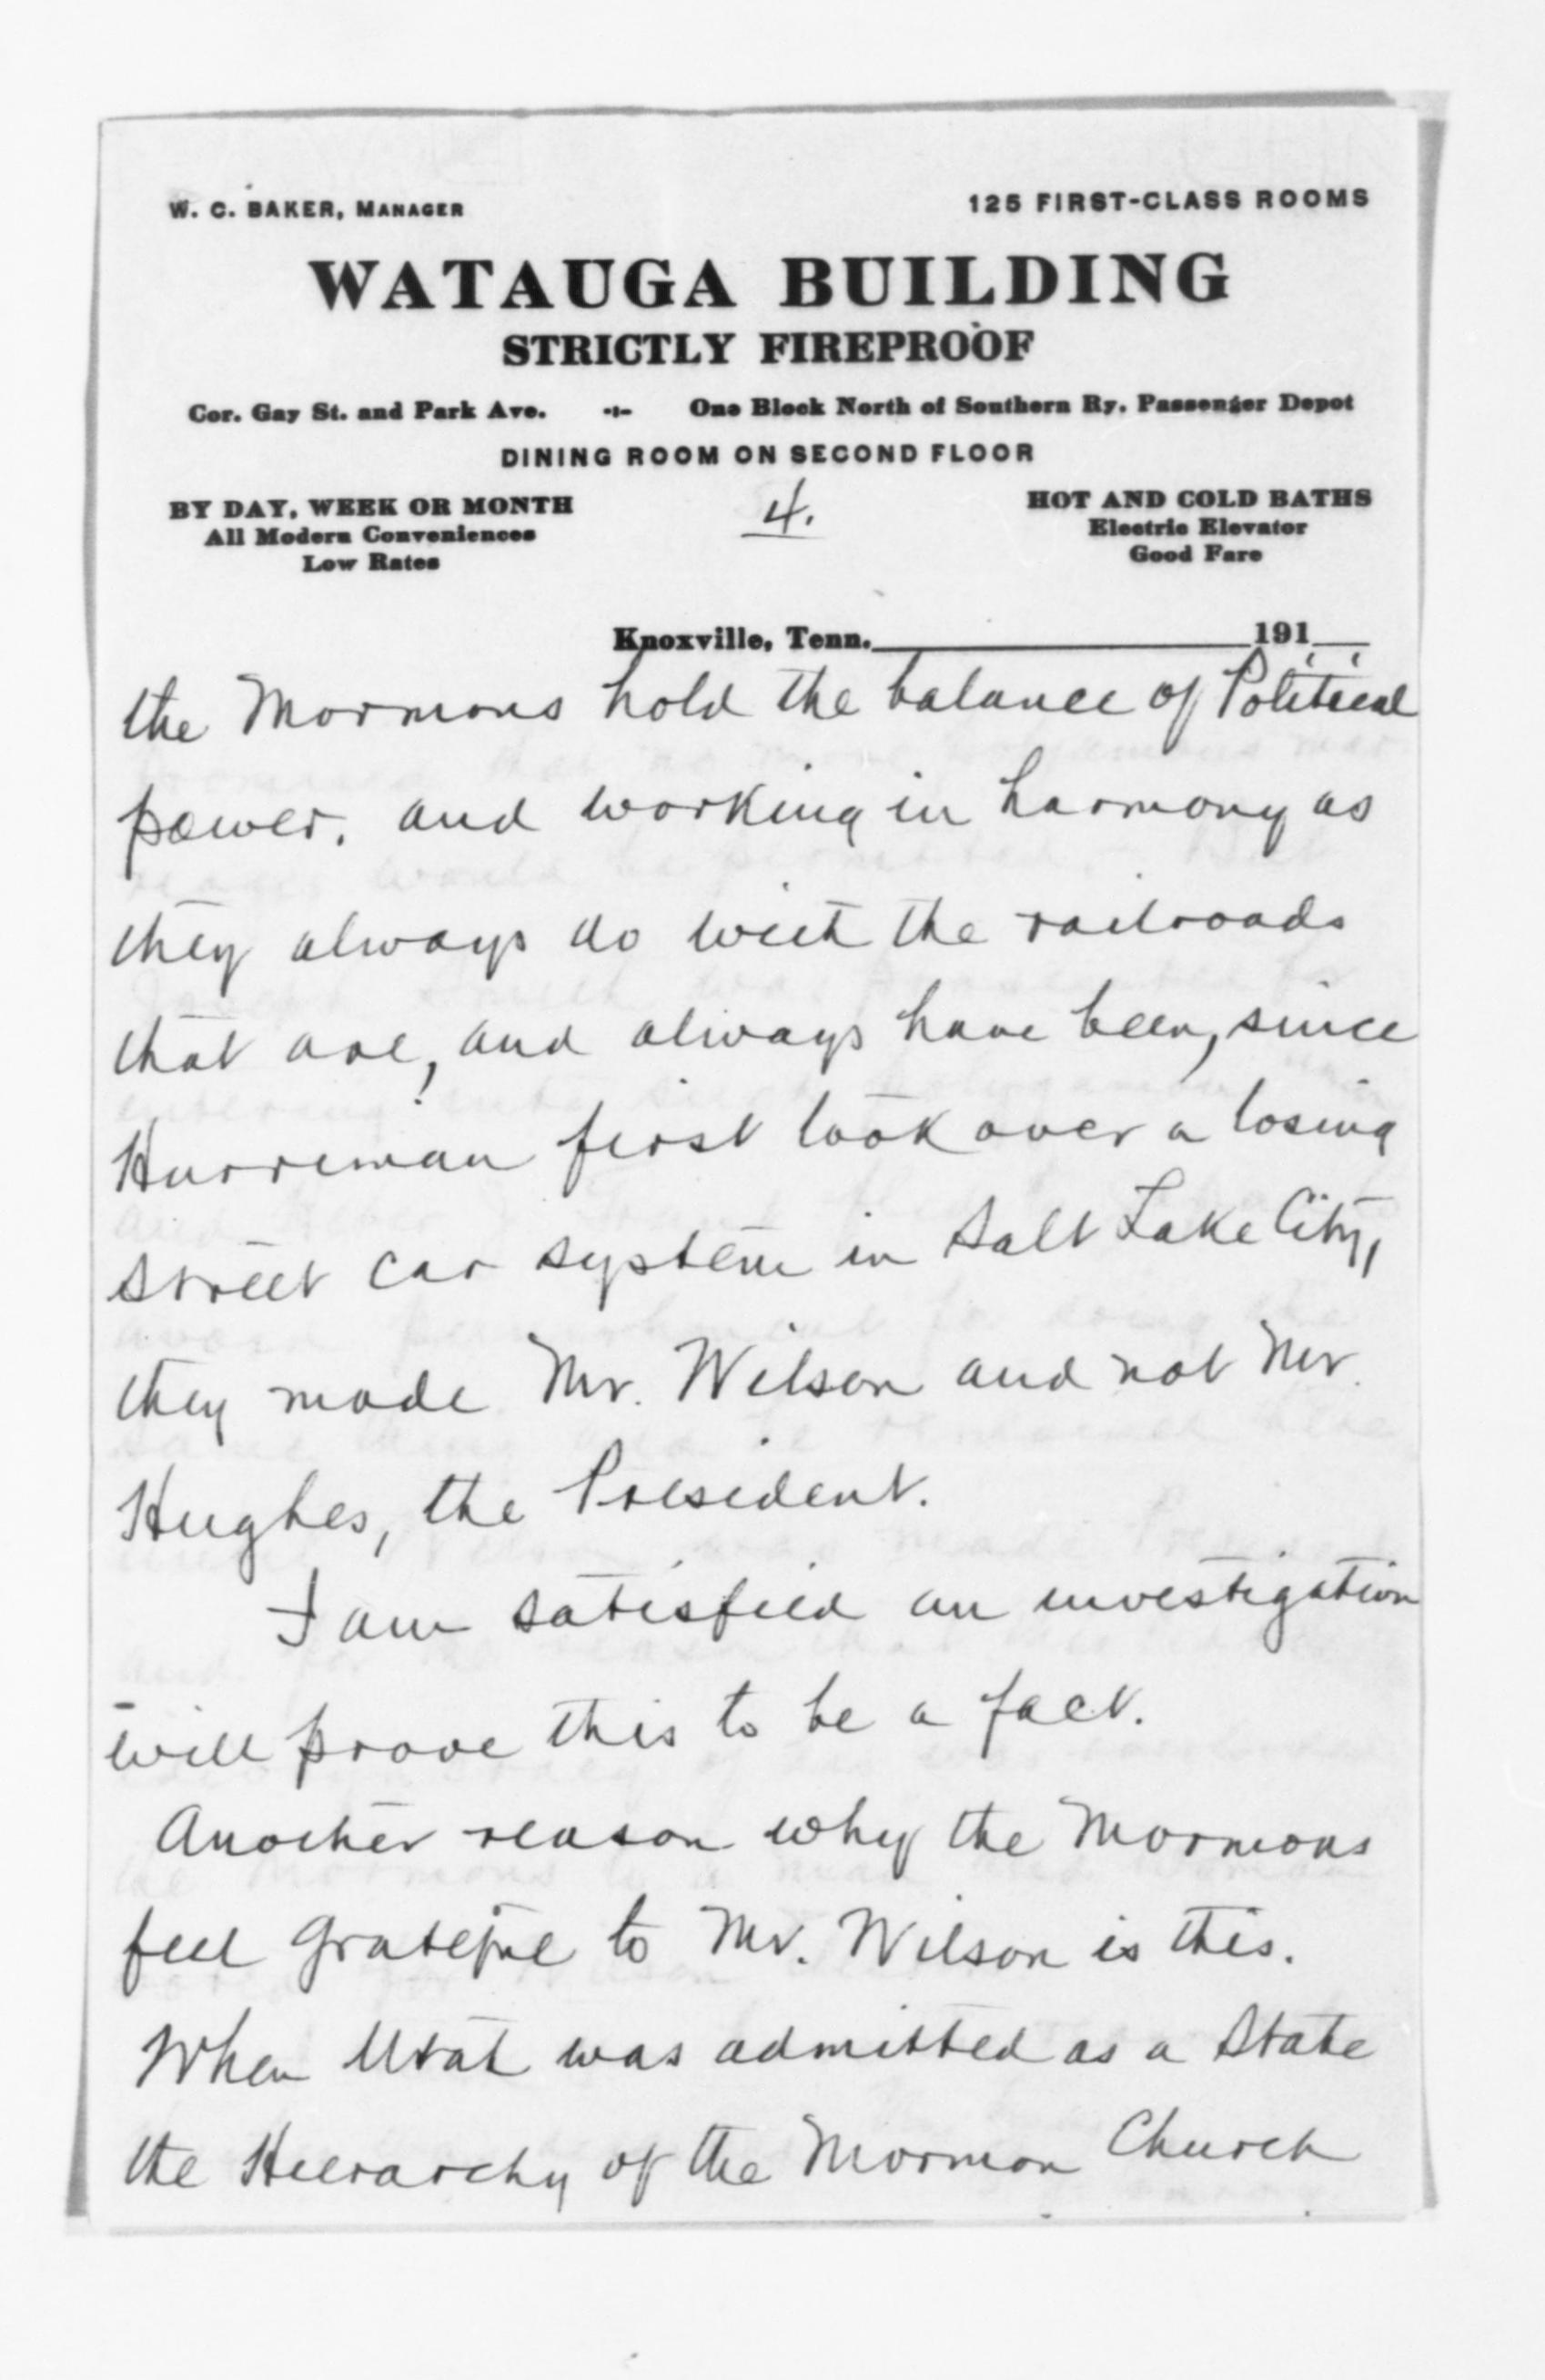 W. C. BAKER, MANAGER 125 FIRST-CLASS ROOMS
WATAUGA BUILDING
STRICTLY FIREPROOF
Cor. Gay St. and Park Ave. -:- One Block North of Southern Ry. Passenger Depot
DINING ROOM ON SECOND FLOOR
BY DAY, WEEK OR MONTH 4. HOT AND COLD BATHS
All Modern Conveniences Electric Elevator
Low Rates Good Fare
Knoxville, Tenn. 191
the Mormons hold the balance of Political
power, and working in harmony as
they always do with the railroads
that are, and always have been, since
Harriman first took over a losing
street car system in Salt Lake City,
they made Mr. Wilson and not Mr.
Hughes, the President.
I am satisfied an investigation
will prove this to be a fact.
Another reason why the Mormons
feel grateful to Mr. Wilson is this.
When Utah was admitted as a State
the Hierarchy of the Mormon Church